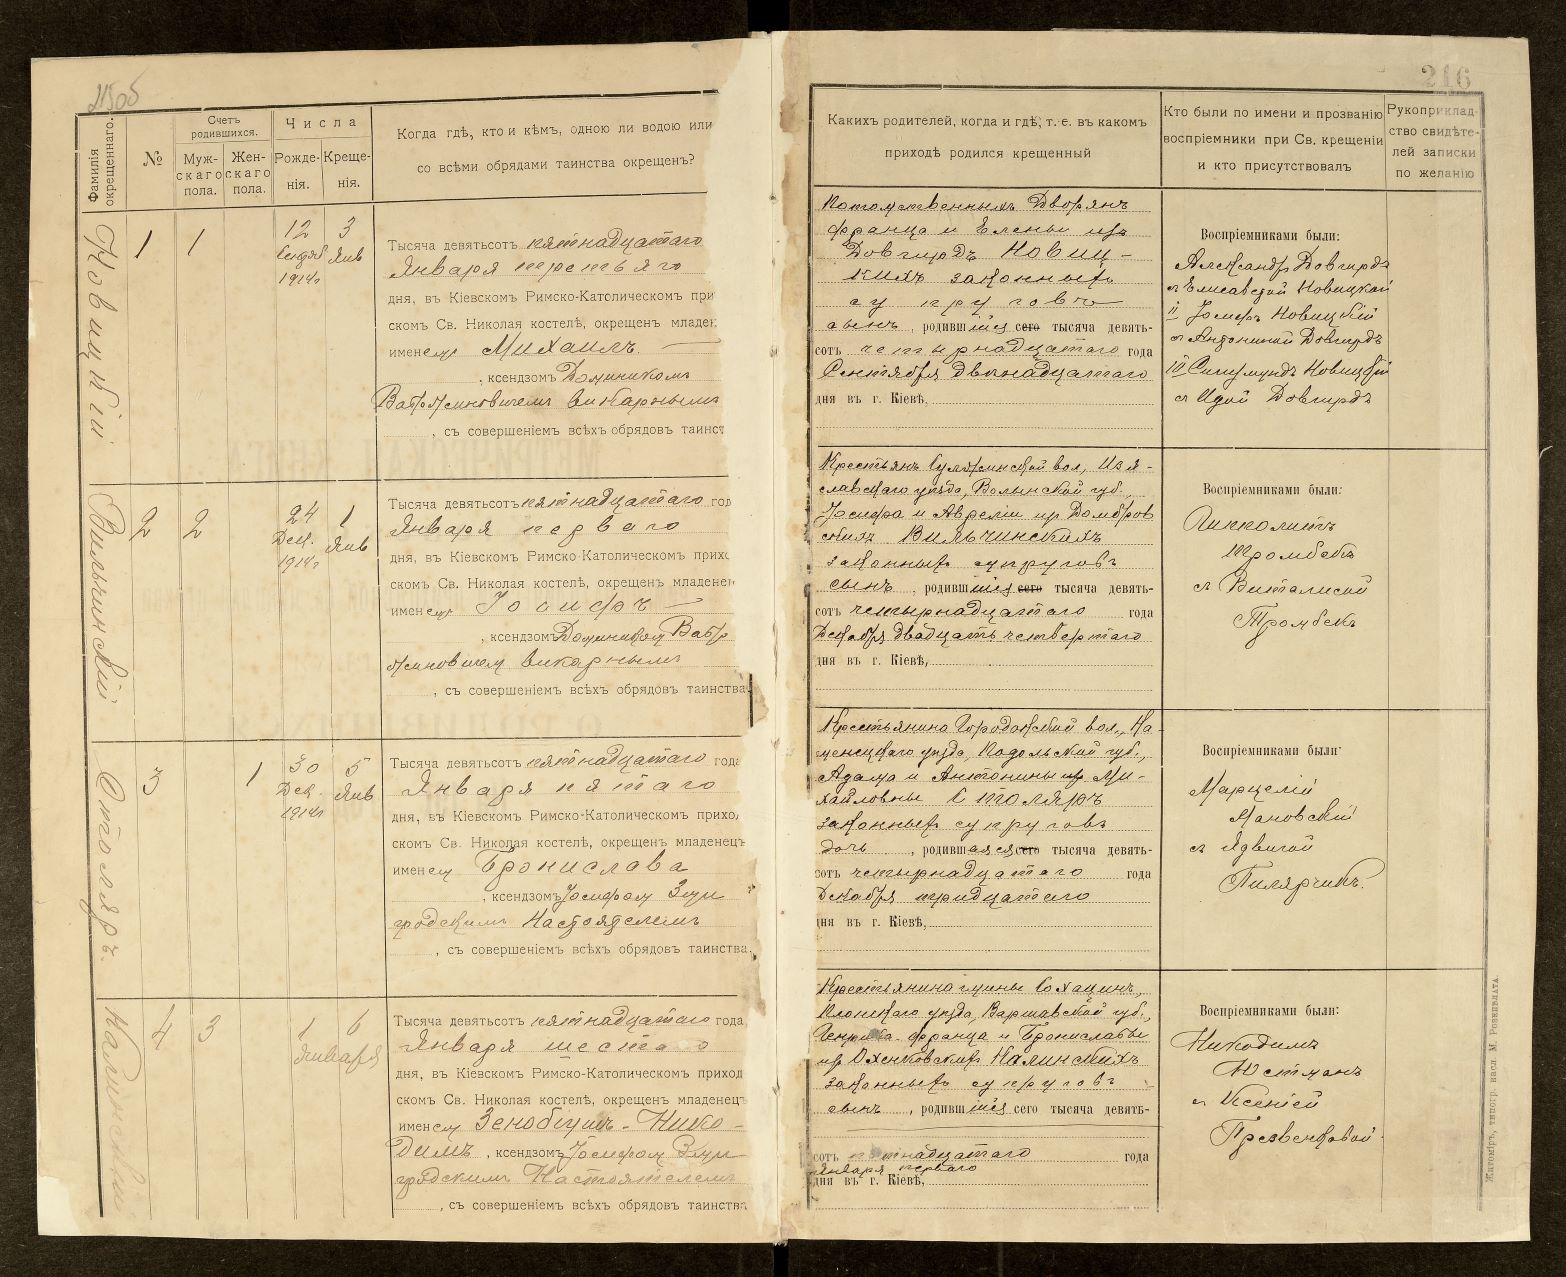 216
Фамилія окрещеннаго.
№
Счетъ родившихся.
Мужскаго пола.
Женскаго пола.
Числа
Рожденія.
Крещенія.
Когда гдѣ, кто и кѣмъ, одною ли водою или
со всѣми обрядами таинства окрещенъ?
Какихъ родителей, когда и гдѣ, т. е. въ какомъ
приходѣ родился крещенный
Кто были по имени и прозванію
воспріемники при Св. крещеніи
и кто присутствовалъ
Рукоприклад-
ство свидѣте-
лей записки
по желанію
Новицкій
1
1
12 Сентяб 1914г
3 Янв
Тысяча девятьсотъ пятнадцатаго
Января третьяго
дня, въ Кіевскомъ Римско-Католическомъ при
скомъ Св. Николая костелѣ, окрещенъ младен
именем Михаилъ
, ксендзомъ Доминикомъ
викарнымъ
, съ совершеніемъ всѣхъ обрядовъ таинст
Потомственныхъ Дворянъ
Франца и Елены изъ
Довгирдъ Новиц-
кихъ законныхъ
супруговъ
сынъ , родившійся сего тысяча девять-
сотъ четырнадцатаго года
Сентября двѣнадцатаго
дня въ г. Кіевѣ,
Воспріемниками были:
Александръ Довгирдъ
съ Елисаветой Новицкой
II Іосифъ Новицкій
съ Антониной Довгирдъ
III Сигизмундъ Новицкій
съ Идой Довгирдъ
Вильчинскій
2
2
24 Дек. 1914г
1 Янв
Тысяча девятьсотъ пятнадцатаго год
Января перваго
дня, въ Кіевскомъ Римско-Католическомъ прихо
скомъ Св. Николая костелѣ, окрещенъ младенец
именем Іосифъ
, ксендзомъ Доминикомъ
викарнымъ
, съ совершеніемъ всѣхъ обрядовъ таинства
Крестьянъ Сульжинской вол, Изя-
славскаго уѣзда, Волынской губ.,
Іосифа и Авреліи изъ Домбров
скихъ Вильчинскихъ
законныхъ супруговъ
сынъ , родившійся сего тысяча девять-
сотъ четырнадцатаго года
Декабря двадцать четвертаго
дня въ г. Кіевѣ,
Воспріемниками были:
Ипполитъ
Тромбекъ
съ Виталисой
Тромбекъ
Столяръ.
3
1
30 Дек. 1914г
5 Янв
Тысяча девятьсотъ пятнадцатаго года
Января пятаго
дня, въ Кіевскомъ Римско-Католическомъ прихо
скомъ Св. Николая костелѣ, окрещенъ младенецъ
именем Бронислава
, ксендзомъ Іосифом Зми
гродскимъ Настоятелемъ
, съ совершеніемъ всѣхъ обрядовъ таинства
Крестьянина Городокской вол., Ка-
менецкаго уѣзда, Подольской губ.,
Адама и Антонины изъ Ми-
хайловны Столяръ
законныхъ супруговъ
дочь , родившаяся сего тысяча девять-
сотъ четырнадцатаго года
Декабря тридцатаго
дня въ г. Кіевѣ,
Воспріемниками были:
Марцелій
Мановскій
съ Ядвигой
Пилярчикъ.
Калинскій
4
3
1
6
января
Тысяча девятьсотъ пятнадцатаго года
Января шестаго
дня, въ Кіевскомъ Римско-Католическомъ приход
скомъ Св. Николая костелѣ, окрещенъ младенецъ
именем Зенобіушъ-Нико-
димъ , ксендзомъ Іосифом Зми-
гродскимъ Настоятелемъ
, съ совершеніемъ всѣхъ обрядовъ таинства
Крестьянина гмины Сохацинъ,
Плонскаго уѣзда, Варшавской губ.,
Генриха-Франца и Брониславы
изъ Калинскихъ
законныхъ супруговъ
сынъ , родившійся сего тысяча девять-
сотъ пятнадцатаго года
Января перваго
дня въ г. Кіевѣ,
Воспріемниками были:
Никодимъ
Юстманъ
съ Ксеніей
Житоміръ, типогр. насл. М. Розенблата.